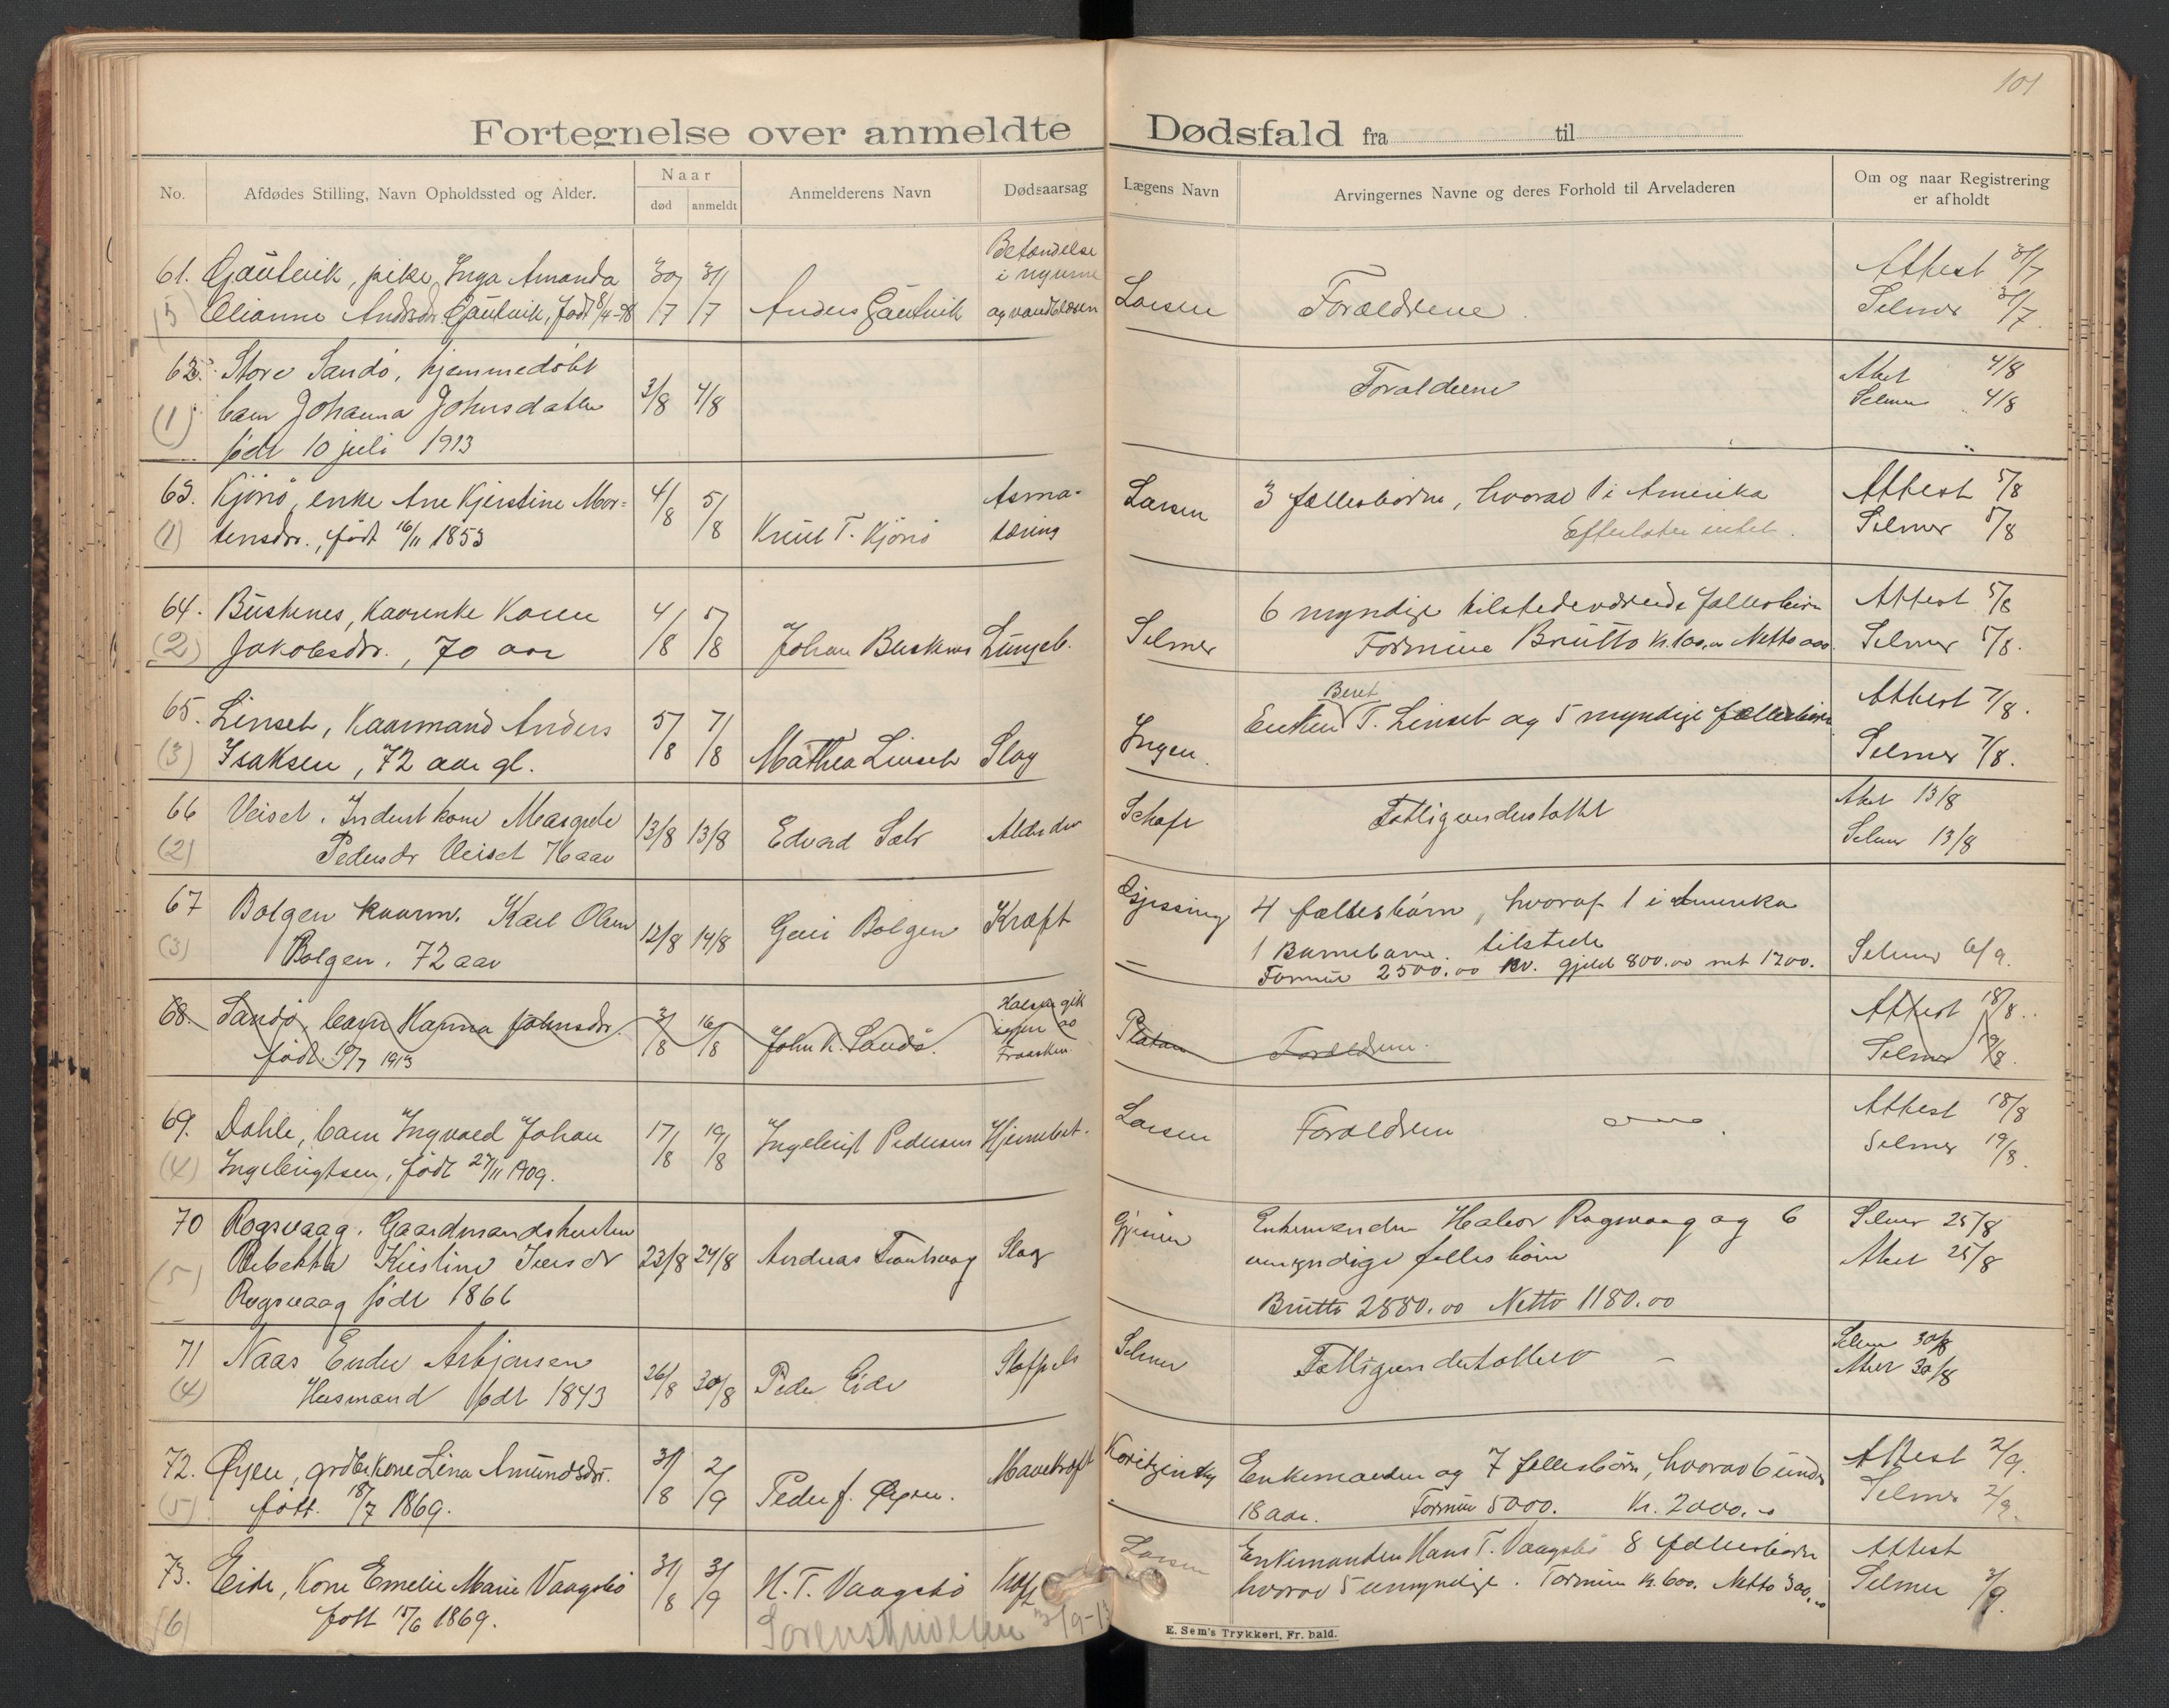 101
Fortegnelse over anmeldte Dødsfald fra til
No.
Afdødes Stilling, Navn Opholdssted og Alder.
Naar
død
anmeldt
Anmelderens Navn
Dødsaarsag
Lægens Navn
Arvingernes Navne og deres Forhold til Arveladeren
Om og naar Registrering
er afholdt
61. Gautvik, pike, Inga Amanda
Olianne Andrsdr. Gautvik, født 8/4-98
30/7 31/7
Anders Gautvik
Betændelse
i nyrerne
og vandblæren
Larsen
Forældrene
Attest 31/7
Selmer 31/7
62. Store Sandö, hjemmedöbt
(1) barn Johanna Johnsdatter
født 10 juli 1913
3/8 4/8
Forældrene
4/8
Selmer 4/8
63. Kjönö, enke Ane Kjerstine Mor=
(1) tensdr., født 16/11 1853
4/8 5/8
Knut T. Kjönö
Asma-
tæring
Larsen
3 fællesbørn, hvorav 1 i Amerika
Efterlater intet.
Attest 5/8
Selmer 5/8
64. Busknes, Kaarenke Karen
(2) Jakobsdr., 70 aar
4/8 5/8
Johan Busknes
Lungeb.
Selmer
6 myndige tilstedeværende fællesbørn
Formue Brutto kr. 100,00 Netto 000.
Attest 5/8
Selmer 5/8.
65. Linset, Kaarmand Anders
(3) Isaksen, 72 aar gl.
5/8 7/8
Mathea Linset
Slag
Ingen
Beret
Enken T. Linset og 5 myndige fællesbørn
Attest 7/8.
Selmer 7/8.
66 Veiset. Inderst kone Margrete
(2) Pedersdr Veiset 76 aar
13/8 13/8
Edvard
Schafe
Fattigunderstøttet
13/8
Selmer 13/8
67 Bolgen kaarm. Karl Olsen
(3) Bolgen. 72 aar
12/8 14/8
Bolgen
Kræft
Gjessing
4 fællesbørn, hvoraf 1 i Amerika
1 Barnebarn. tilstede
Formue 2500.00 gjeld 800.00 net 1700.
Selmer 6/9.
68. Sandö, barn Hanna Johnsdr.
født 10/7 1913
3/8 16/8
John K. Sandö.
Platou
Forældrene.
Attest 18/8.
Selmer 19/8.
69. Dahle, barn Ingvald Johan
(4) Ingebrigtsen, født 27/11 1909.
17/8 19/8
Ingebrigt Pedersen
Hjernebet.
Larsen
Forældrene
Attest 18/8
Selmer 19/8.
70 Rogsvaag. Gaardmandshustru
Rebekka Kristine Iversdr
(5) Rogsvaag født 1866
23/8 24/8
Andreas
Slag
Enkemanden Halvor Rogsvaag og 6
umyndige fellesbörn
Brutto 2880.00 Netto 1180.00
Selmer 25/8
25/8
71 Naas Ender Asbjørnsen
(4) Husmand født 1843
26/8 30/8
Peder Eide
Selmer
Fattigunderstøttet
Selmer 30/8
30/8
72. Øyen, grdbr.kone Lina Amundsdr.
(5) født. 18/7 1869.
31/8 2/9
Peder J. Øyen.
Mavekræft
Koritzinsky
Enkemanden og 7 fællesbørn, hvorav 6 under
18 aar. Formue 5000. Kr. 2000.
Attest 2/9.
Selmer 2/9.
73. Eide, Kone Emelie Marie Vaagsbö
(6) født 15/6 1869.
31/8 3/9
H. T. Vaagsbö
Kræft
Larsen
Enkemanden Hans T. Vaagsbö 8 fællesbørn
hvorav 5 umyndige. Formue kr. 600. Netto 300,00
Attest
Selmer 3/9.
Sorenskriveren
E. Sem's Trykkeri, Fr. hald.